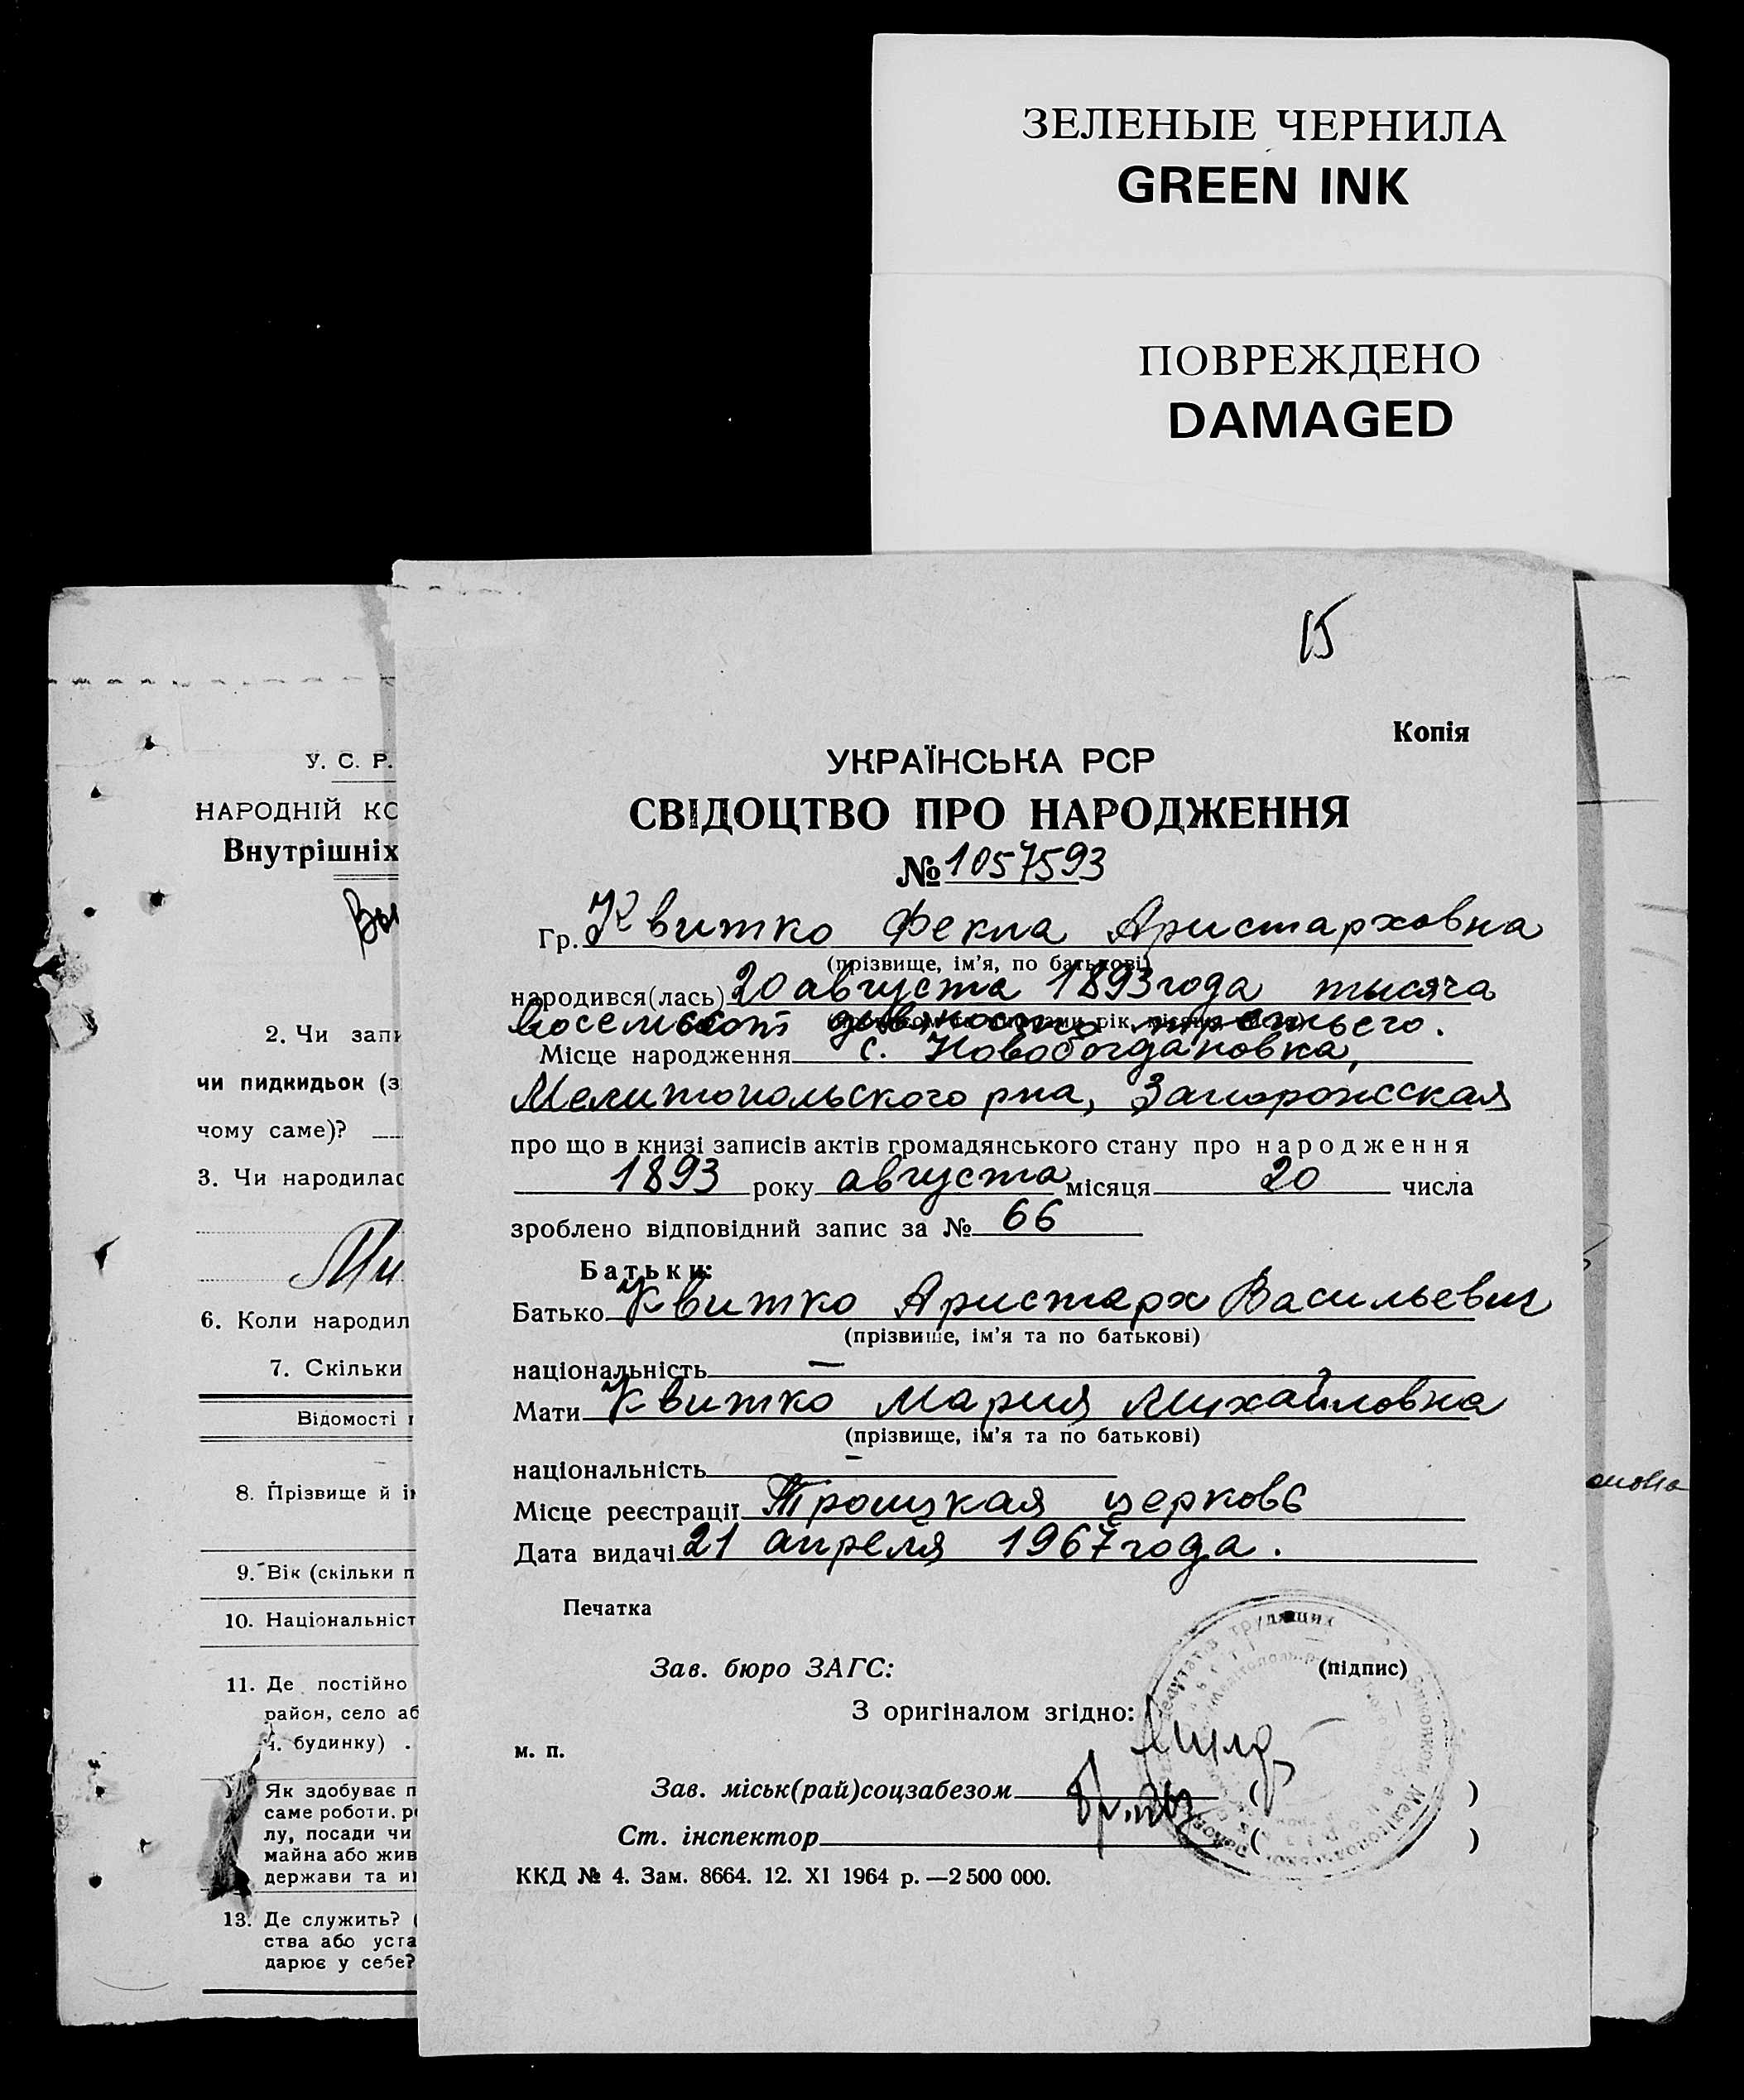 ЗЕЛЕНЫЕ ЧЕРНИЛА
GREEN INK
ПОВРЕЖДЕНО
DAMAGED
15
Копія
УКРАЇНСЬКА РСР
СВІДОЦТВО ПРО НАРОДЖЕННЯ
№ 1057593
Гр. Квитко Фекла Аристарховна
(прізвище, ім'я, по батькові)
народився(лась) 20 августа 1893 года тысяча
восемьсот девяносто третьего.
Місце народження с. Новобогдановка,
Мелитопольского рна, Запорожсская
про що в книзі записів актів громадянського стану про народження
1893 року августа місяця 20 числа
зроблено відповідний запис за № 66
Батьки:
Батько Квитко Аристарх Васильевич
(прізвище, ім'я та по батькові)
національність —
Мати Квитко Мария Михайловна
(прізвище, ім'я та по батькові)
національність —
Місце реєстрації Троицкая церковь
Дата видачі 21 апреля 1967 года.
Печатка
Зав. бюро ЗАГС: (підпис)
З оригіналом згідно:
м. п.
Зав. міськ(рай)соцзабезом ( )
Ст. інспектор ( )
ККД № 4. Зам. 8664. 12. XI 1964 р. —2 500 000.
У. С. Р.
НАРОДНІЙ КО
Внутрішніх
2. Чи запи
чи пидкидьок (з
чому саме)?
3. Чи народилас
Ми
6. Коли народил
7. Скільки
Відомості
8. Прізвище й ін
9. Вік (скільки п
10. Національніст
11. Де постійно
район, село аб
будинку) .
Як здобуває п
саме роботи, ро
лу, посади чи
майна або жив
держави та ин
13. Де служить? (
ства або уста
дарює у себе?